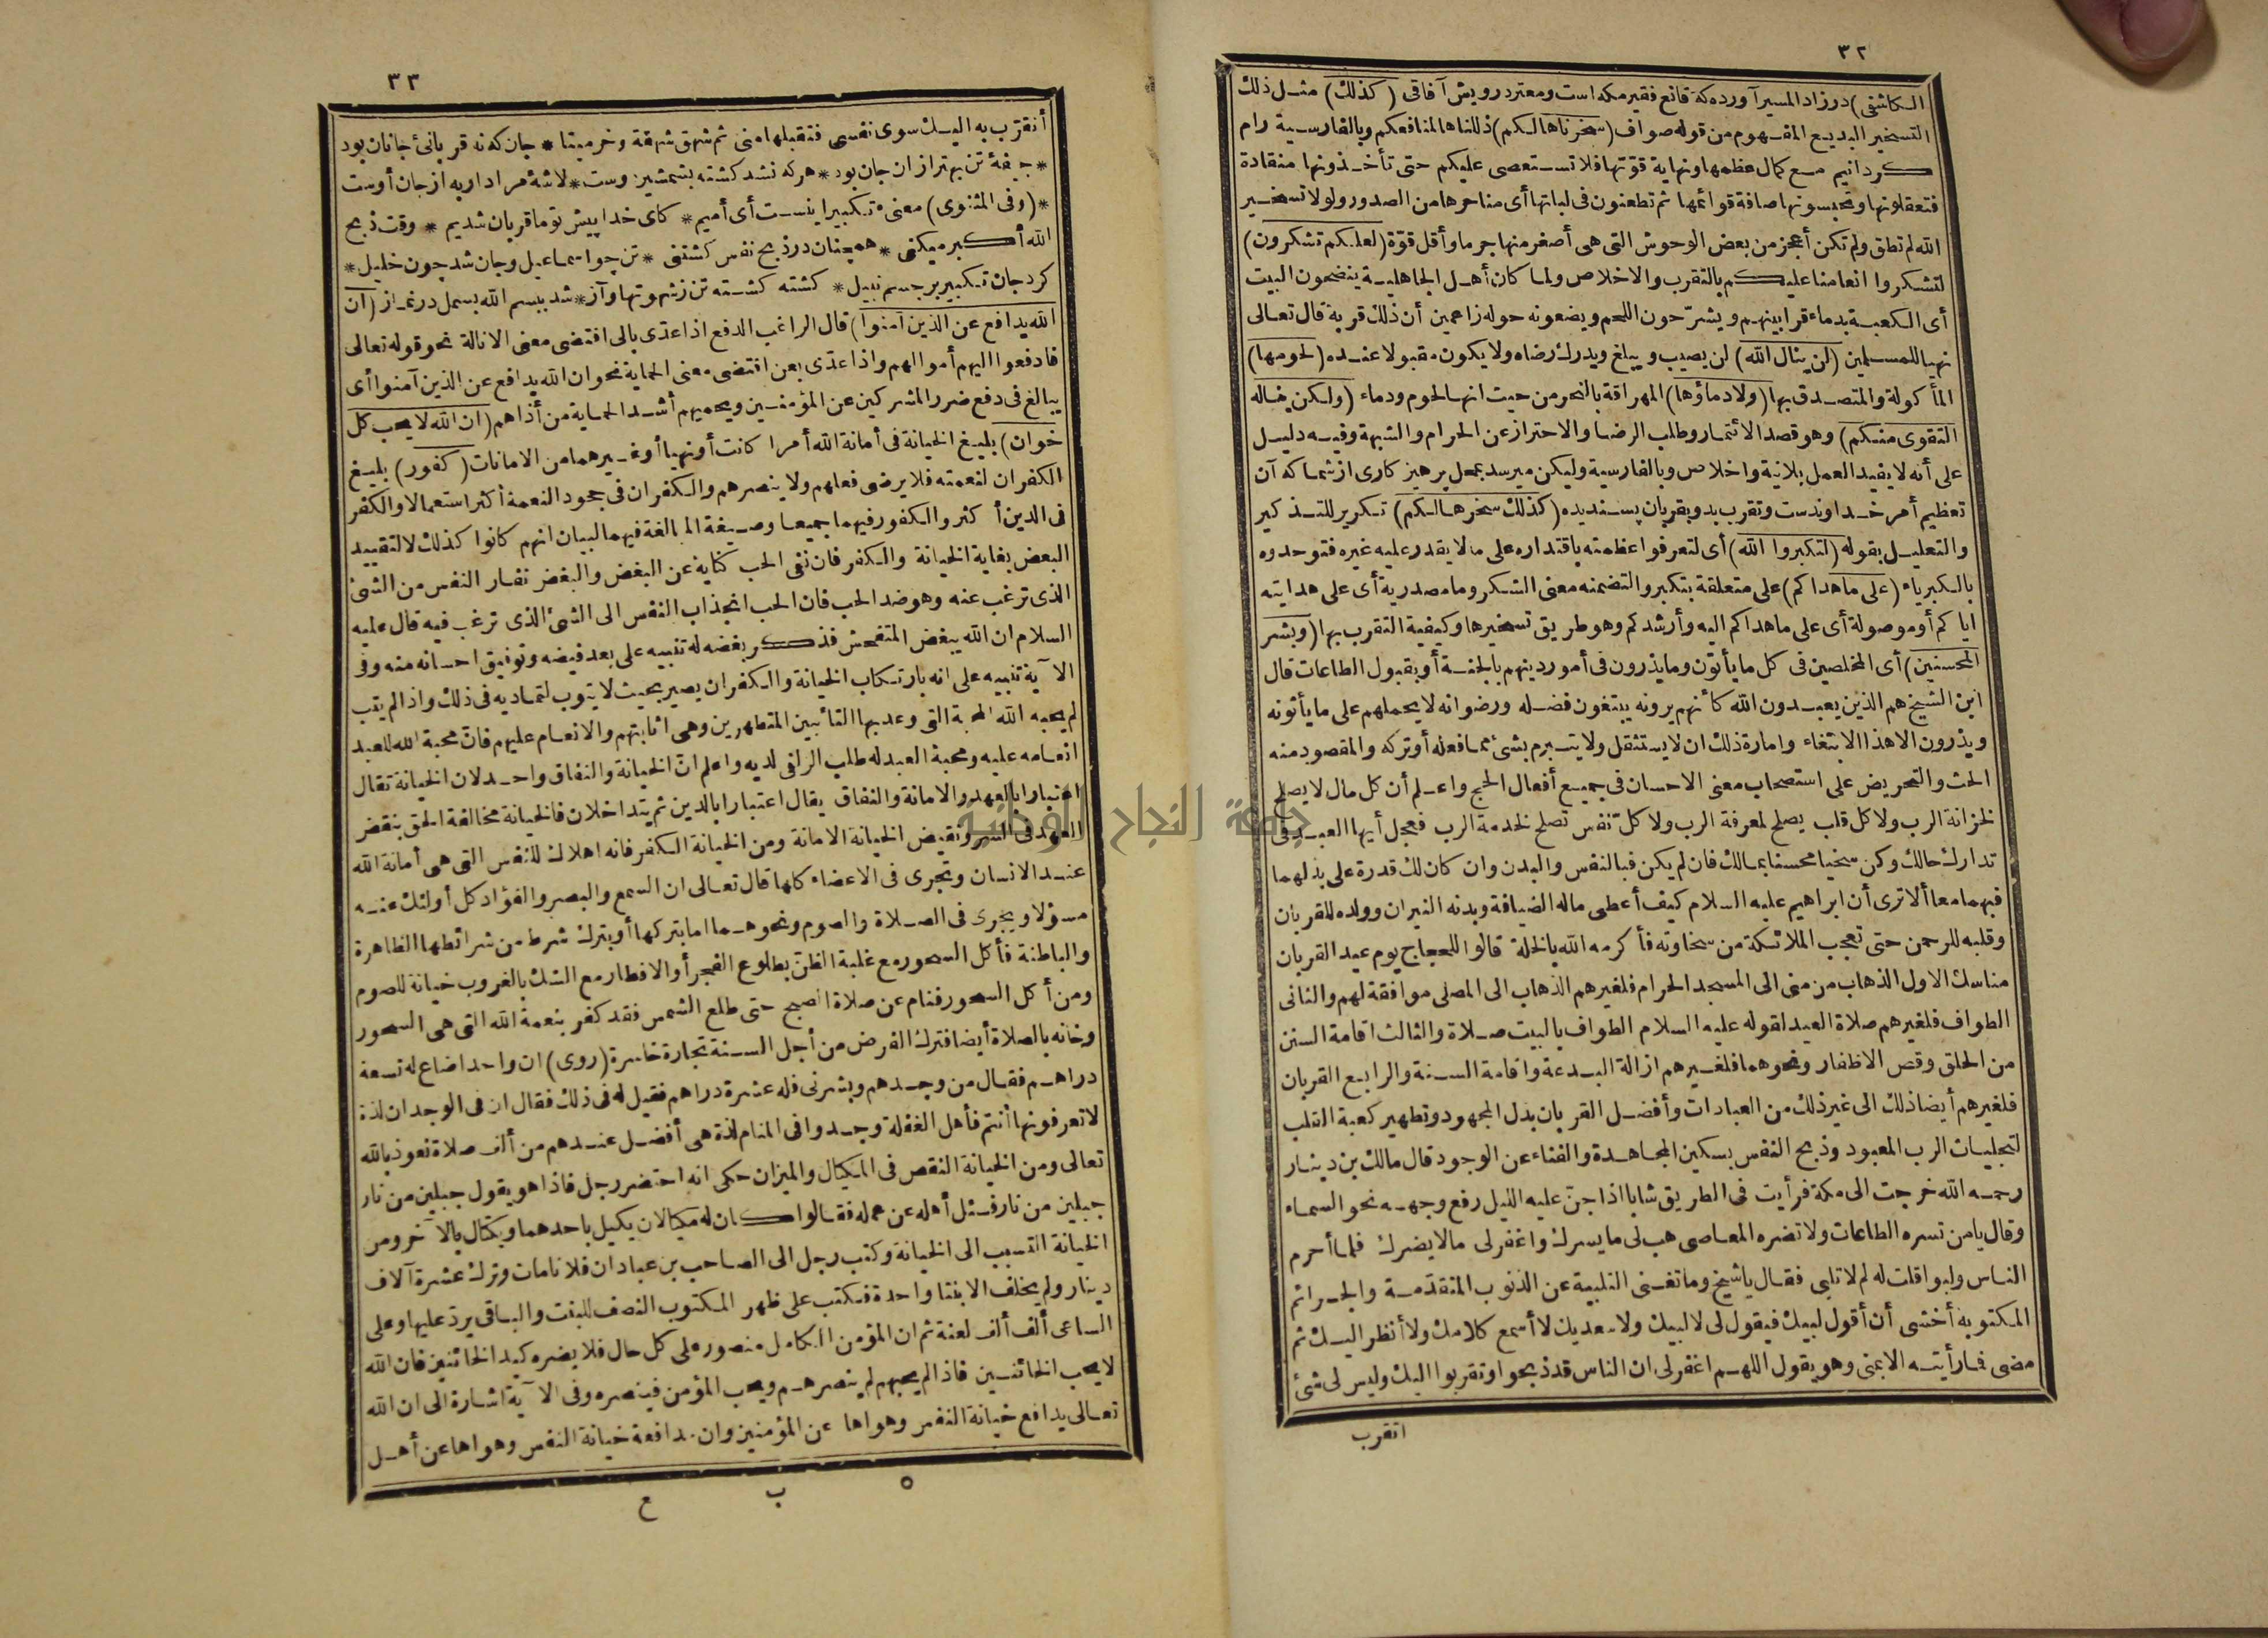 ٣٢
الكاشفى) در زاد المسير آورده كه قانع فقير مكه است ومعتر درويش آفاقى (كذلك) مثل ذلك
التسخير البديع المفهوم من قوله صواف (سخرناها لكم) ذللناها لمنافعكم وبالفارسية رام
كردانيم مع كمال عظمها ونهاية قوّتها فلا تستعصى عليكم حتى تأخذونها منقادة
فتعقلونها وتحبسونها صافة قوائمها ثم تطعنون فى لباتها أى مناحرها من الصدور ولولا تسخير
الله لم تطق ولم تكن أعجز من بعض الوحوش التى هى أصغر منها جرما وأقل قوّة (لعلكم تشكرون)
لتشكروا انعامنا عليكم بالتقرب والاخلاص ولما كان أهل الجاهلية ينضحون البيت
أى الكعبة بدماء قرابينهم ويشرّحون اللحم ويضعونه حوله زاعمين أن ذلك قربة قال تعالى
نهيا للمسلمين (لن ينال الله) لن يصيب ويبلغ ويدرك رضاه ولا يكون مقبولا عنده (لحومها)
المأكولة والمتصدق بها (ولا دماؤها) المهراقة بالنحر من حيث انها لحوم ودماء (ولكن يناله
التقوى منكم) وهو قصد الائتمار وطلب الرضا والاحتراز عن الحرام والشبهة وفيه دليل
على أنه لا يفيد العمل بلا نية واخلاص وبالفارسية وليكن ميرسد بمحل پرهيز كارى از شما كه آن
تعظيم أمر خداوندست وتقرب بدو بقربان پسنديده (كذلك سخرها لكم) تكرير للتذكير
والتعليل بقوله (لتكبروا الله) أى لتعرفوا عظمته باقتداره على ما لا يقدر عليه غيره فتوحدوه
بالكبرياء (على ما هداكم) على متعلقة بتكبروا لتضمنه معنى الشكر وما مصدرية أى على هدايته
اياكم أو موصولة أى على ما هداكم اليه وأرشدكم وهو طريق تسخيرها وكيفية التقرب بها (وبشر
المحسنين) أى المخلصين فى كل ما يأتون وما يذرون فى أمور دينهم بالجنة أو بقبول الطاعات قال
ابن الشيخ هم الذين يعبدون الله كأنهم يرونه يبتغون فضله ورضوانه لا يحملهم على ما يأتونه
ويذرون الا هذا الابتغاء وامارة ذلك ان لا يستثقل ولا يتبرم بشئ مما فعله أو تركه والمقصود منه
الحث والتحريض على استصحاب معنى الاحسان فى جميع أفعال الحج واعلم أن كل مال لا يصلح
لخزانة الرب ولا كل قلب يصلح لمعرفة الرب ولا كلّ نفس تصلح لخدمة الرب فعجل أيها العبد فى
تدارك حالك وكن سخيا محسنا بمالك فان لم يكن فبالنفس والبدن وان كان لك قدرة على بذلهما
فبهما معا ألا ترى أن ابراهيم عليه السلام كيف أعطى ماله الضيافة وبدنه النيران وولده للقربان
وقلبه للرحمن حتى تعجب الملائكة من سخاوته فأكرمه الله بالخلة قالوا للحجاج يوم عيد القربان
مناسك الاول الذهاب من منى الى المسجد الحرام فلغيرهم الذهاب الى المصلى موافقة لهم والثانى
الطواف فلغيرهم صلاة العيد لقوله عليه السلام الطواف بالبيت صلاة والثالث اقامة السنن
من الحلق وقص الاظفار ونحوهما فلغيرهم ازالة البدعة واقامة السنة والرابع القربان
فلغيرهم أيضا ذلك الى غير ذلك من العبادات وأفضل القربان بذل المجهود وتطهير كعبة القلب
لتجليات الرب المعبود وذبح النفس بسكين المجاهدة والفناء عن الوجود قال مالك بن دينار
رحمه الله خرجت الى مكة فرأيت فى الطريق شابا اذا جنّ عليه الليل رفع وجهه نحو السماء
وقال يا من تسره الطاعات ولا تضره المعاصى هب لى ما يسرك واغفر لى ما لا يضرك فلما أحرم
الناس ولبوا قلت له لم لا تلبى فقال يا شيخ وما تغنى التلبية عن الذنوب المتقدّمة والجرائم
المكتوبة أخشى أن أقول لبيك فيقول لى لا لبيك ولا سعديك لا أسمع كلامك ولا أنظر اليك ثم
مضى فما رأيته الا بمنى وهو يقول اللهم اغفر لى ان الناس قد ذبحوا وتقربوا اليك وليس لى شئ
اتقرب
٣٣
أتقرّب به اليك سوى نفسى فتقبلها منى ثم شهق شهقة وخر ميتا * جان كه نه قربانئ جانان بود
* جيفهٔ تن بهتر از ان جان بود * هر كه نشد كشته بشمشير دوست * لاشهٔ مردار به از جان أوست
* (وفى المثنوى) معنئ تكبير اينست أى أميم * كاى خدا پيش تو ما قربان شديم * وقت ذبح
الله أكبر ميكنى * همچنان در ذبح نفس كشتنى * تن چو اسماعيل وجان شد چون خليل *
كرد جان تكبير بر جسم نبيل * كشته كشته تن ز شهوتها وآز * شد ببسم الله بسمل در نماز (ان
الله يدافع عن الذين آمنوا) قال الراغب الدفع اذا عدّى بالى اقتضى معنى الانالة نحو قوله تعالى
فادفعوا اليهم أموالهم واذا عدّى بعن اقتضى معنى الحماية نحو ان الله يدافع عن الذين آمنوا أى
يبالغ فى دفع ضرر المشركين عن المؤمنين ويحميهم أشد الحماية من أذاهم (ان الله لا يحب كل
خوان) بليغ الخيانة فى أمانة الله أمرا كانت أو نهيا أو غيرهما من الامانات (كفور) بليغ
الكفران لنعمته فلا يرضى فعلهم ولا ينصرهم والكفران فى جحود النعمة أكثر استعمالا والكفر
فى الدين أكثر والكفور فيهما جميعا وصيغة المبالغة فيهما لبيان انهم كانوا كذلك لا لتقييد
البعض بغاية الخيانة والكفر فان نفى الحب كناية عن البغض والبغض نفار النفس من الشئ
الذى ترغب عنه وهو ضد الحب فان الحب انجذاب النفس الى الشئ الذى ترغب فيه قال عليه
السلام ان الله يبغض المتفحش فذكر بغضه له تنبيه على بعد فيضه وتوفيق احسانه منه وفى
الآية تنبيه على انه بارتكاب الخيانة والكفران يصير بحيث لا يتوب لتماديه فى ذلك واذا لم يتب
لم يحبه الله المحبة التى وعد بها التائبين المتطهرين وهى اثابتهم والانعام عليهم فانّ محبة الله للعبد
انعامه عليه ومحبة العبد له طلب الزلفى لديه واعلم انّ الخيانة والنفاق واحد لان الخيانة تقال
اعتبارا بالعهد والامانة والنفاق يقال اعتبارا بالدين ثم يتداخلان فالخيانة مخالفة الحق بنقض
العهد فى السر ونقيض الخيانة الامانة ومن الخيانة الكفر فانه اهلاك للنفس التى هى أمانة الله
عند الانسان وتجرى فى الاعضاء كلها قال تعالى ان السمع والبصر والفؤاد كل أولئك عنه
مسؤلا ويجرى فى الصلاة والصوم ونحوهما اما بتركها أو بترك شرط من شرائطها الظاهرة
والباطنة فأكل السحور مع غلبة الظنّ بطلوع الفجر أو الافطار مع الشك بالغروب خيانة للصوم
ومن أكل السحور فنام عن صلاة الصبح حتى طلع الشمس فقد كفر بنعمة الله التى هى السحور
وخانه بالصلاة أيضا فترك الفرض من أجل السنة تجارة خاسرة (روى) ان واحدا ضاع له تسعة
دراهم فقال من وجدهم وبشرنى فله عشرة دراهم فقيل له فى ذلك فقال ان فى الوجدان لذة
لا تعرفونها أنتم فأهل الغفلة وجدوا فى المنام لذة هى أفضل عندهم من ألف صلاة نعوذ بالله
تعالى ومن الخيانة النقص فى المكيال والميزان حكى انه احتضر رجل فاذا هو يقول جبلين من نار
جبلين من نار فسئل أهله عن عمله فقالوا كان له مكيالان يكيل باحدهما ويكتال بالآخر ومن
الخيانة التسبب الى الخيانة وكتب رجل الى الصاحب بن عباد ان فلانا مات وترك عشرة آلاف
دينار ولم يخلف الا بنتا واحدة فكتب على ظهر المكتوب النصف للبنت والباقى يردّ عليها وعلى
الساعى ألف ألف لعنة ثم ان المؤمن الكامل منصور على كل حال فلا يضره كيد الخائنين فان الله
لا يحب الخائنين فاذا لم يحبهم لم ينصرهم ويحب المؤمن فينصره وفى الآية اشارة الى ان الله
تعالى يدافع خيانة النفس وهواها عن المؤمنين وان مدافعة خيانة النفس وهواها عن أهل
٥ ب ع
جامعة النجاح الوطنية